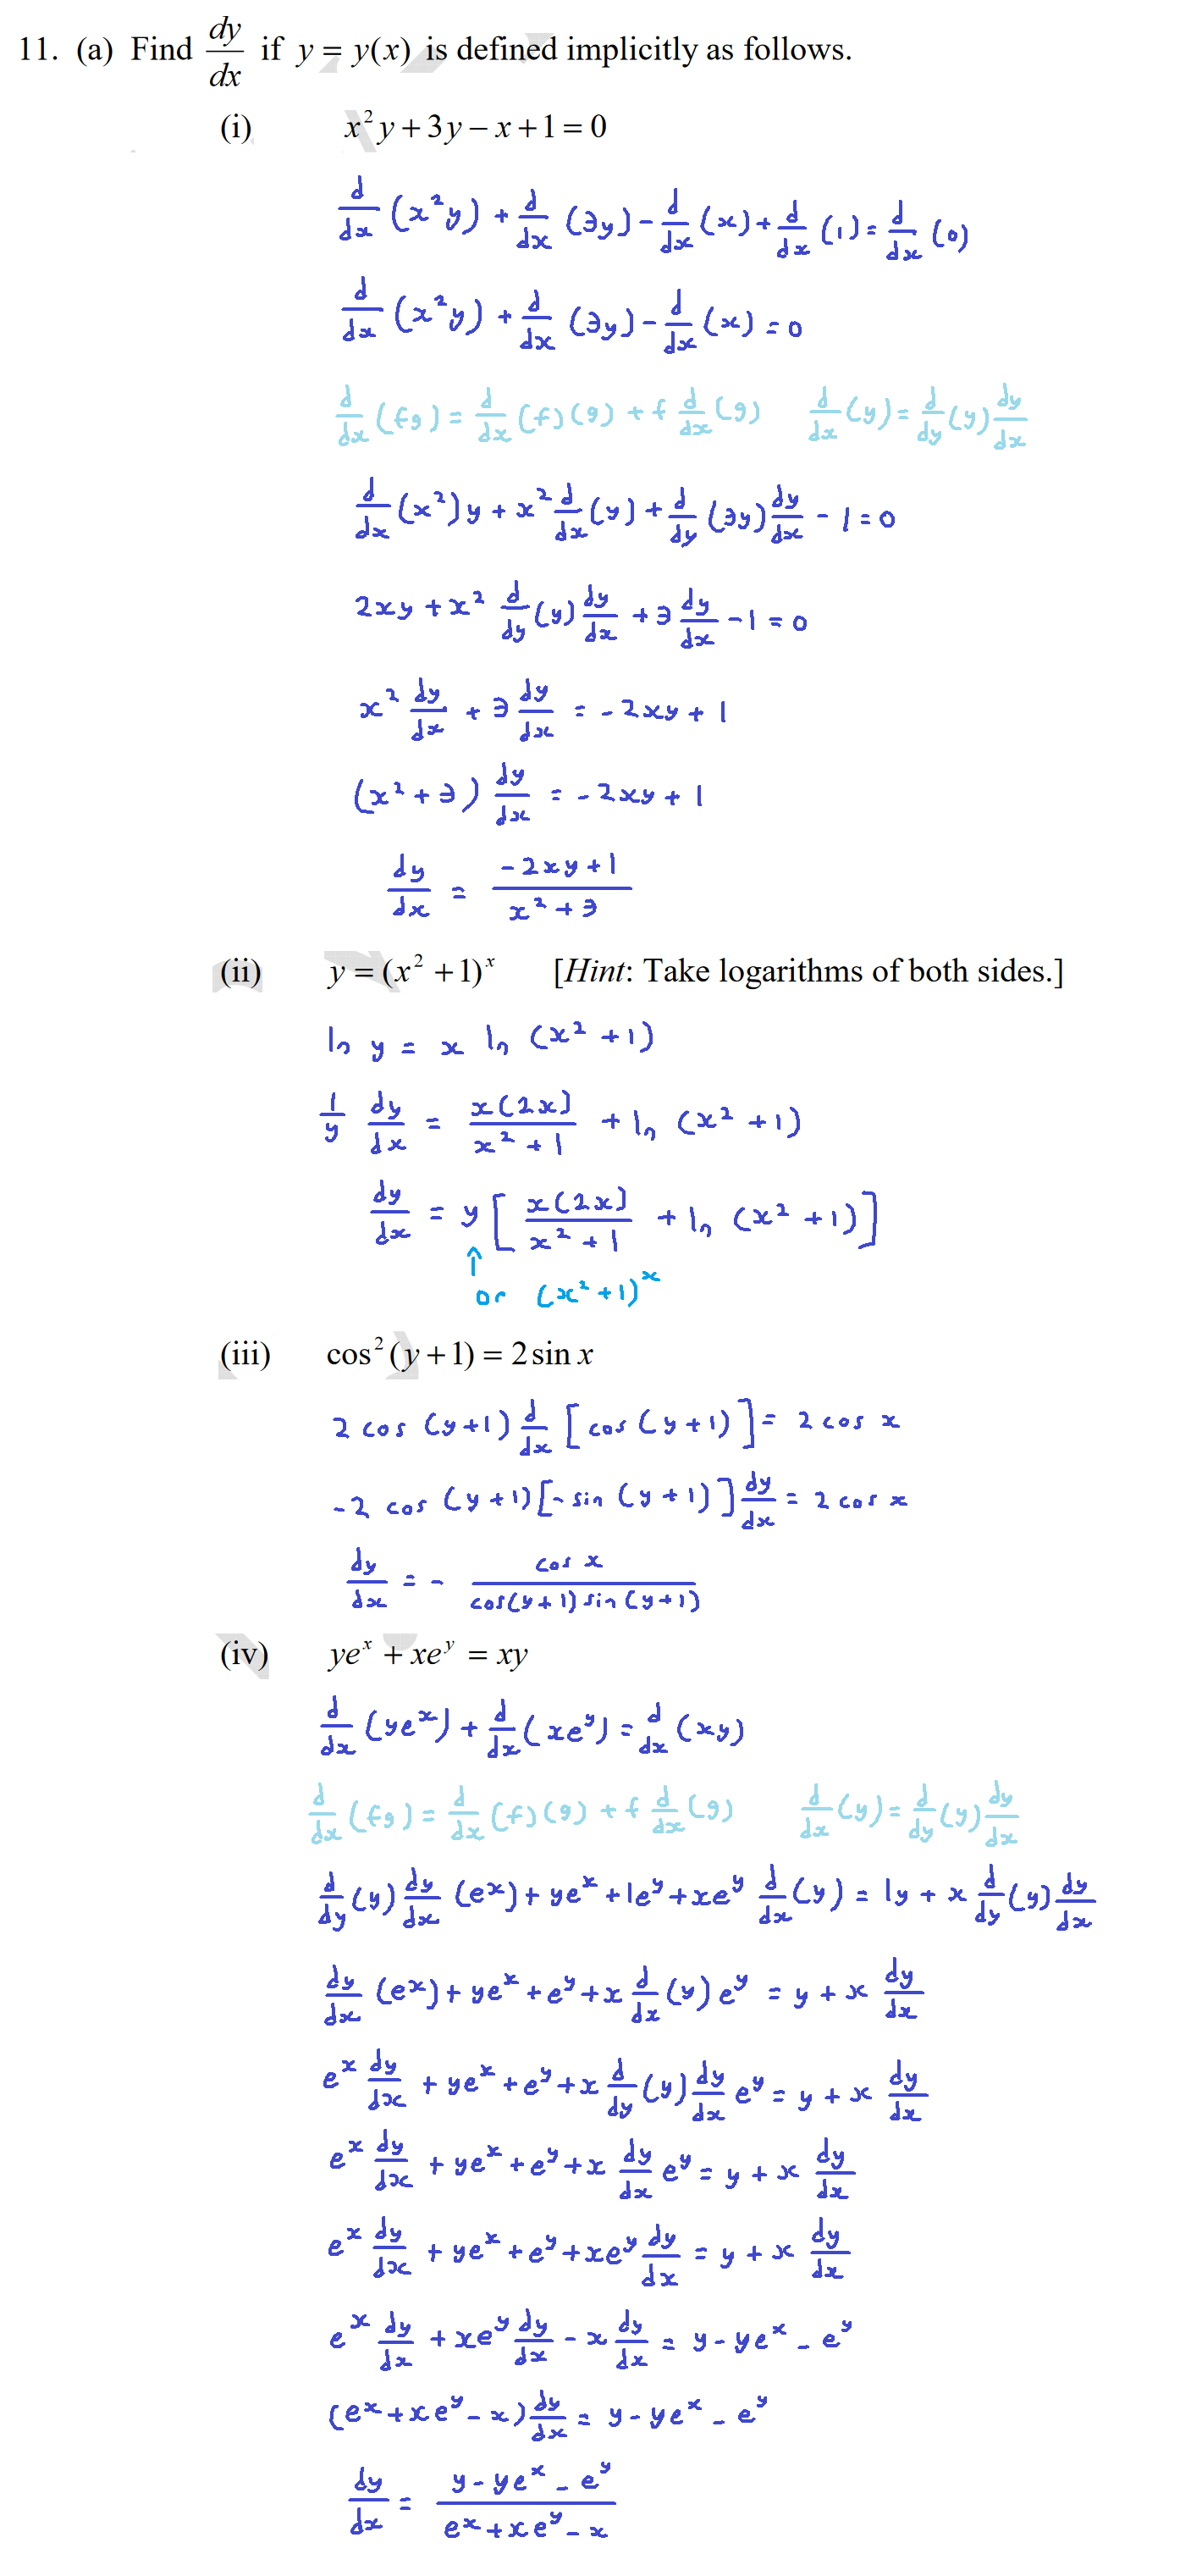 11. (a) Find dy/dx if y = y(x) is defined implicitly as follows.
(i) x²y + 3y − x + 1 = 0
d/dx (x²y) + d/dx (3y) − d/dx (x) + d/dx (1) = d/dx (0)
d/dx (x²y) + d/dx (3y) − d/dx (x) = 0
d/dx (fg) = d/dx (f)(g) + f d/dx (g) d/dx (y) = d/dy (y) dy/dx
d/dx (x²)y + x² d/dx (y) + d/dy (3y) dy/dx − 1 = 0
2xy + x² d/dy (y) dy/dx + 3 dy/dx − 1 = 0
x² dy/dx + 3 dy/dx = −2xy + 1
(x² + 3) dy/dx = −2xy + 1
dy/dx = (−2xy + 1)/(x² + 3)
(ii) y = (x² + 1)ˣ [Hint: Take logarithms of both sides.]
ln y = x ln (x² + 1)
1/y dy/dx = x(2x)/(x² + 1) + ln (x² + 1)
dy/dx = y [ x(2x)/(x² + 1) + ln (x² + 1) ]
↑
or (x² + 1)ˣ
(iii) cos² (y + 1) = 2 sin x
2 cos (y + 1) d/dx [cos (y + 1)] = 2 cos x
−2 cos (y + 1) [− sin (y + 1)] dy/dx = 2 cos x
dy/dx = − cos x/(cos(y + 1) sin (y + 1))
(iv) yeˣ + xeʸ = xy
d/dx (yeˣ) + d/dx (xeʸ) = d/dx (xy)
d/dx (fg) = d/dx (f)(g) + f d/dx (g) d/dx (y) = d/dy (y) dy/dx
d/dy (y) dy/dx (eˣ) + yeˣ + 1eʸ + xeʸ d/dx (y) = 1y + x d/dy (y) dy/dx
dy/dx (eˣ) + yeˣ + eʸ + x d/dx (y) eʸ = y + x dy/dx
eˣ dy/dx + yeˣ + eʸ + x d/dy (y) dy/dx eʸ = y + x dy/dx
eˣ dy/dx + yeˣ + eʸ + x dy/dx eʸ = y + x dy/dx
eˣ dy/dx + yeˣ + eʸ + xeʸ dy/dx = y + x dy/dx
eˣ dy/dx + xeʸ dy/dx − x dy/dx = y − yeˣ − eʸ
(eˣ + xeʸ − x) dy/dx = y − yeˣ − eʸ
dy/dx = (y − yeˣ − eʸ)/(eˣ + xeʸ − x)